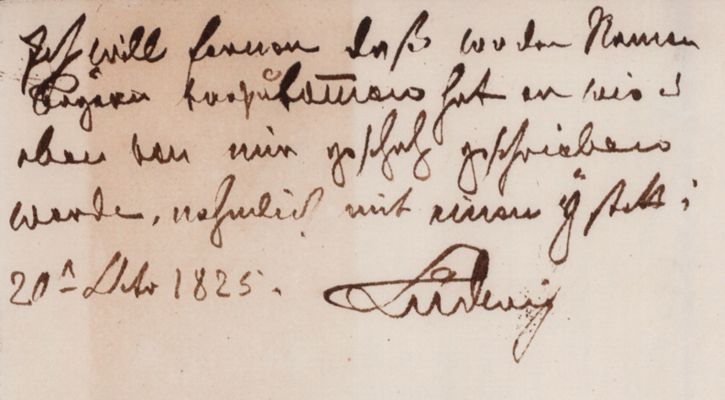 Ich will ferner daß wo der Namen
Bayern vorzukommen hat er wie
eben von mir geschah geschrieben
werde, nehmlich mit einem ÿ statt i
20n Octo 1825.
Ludwig